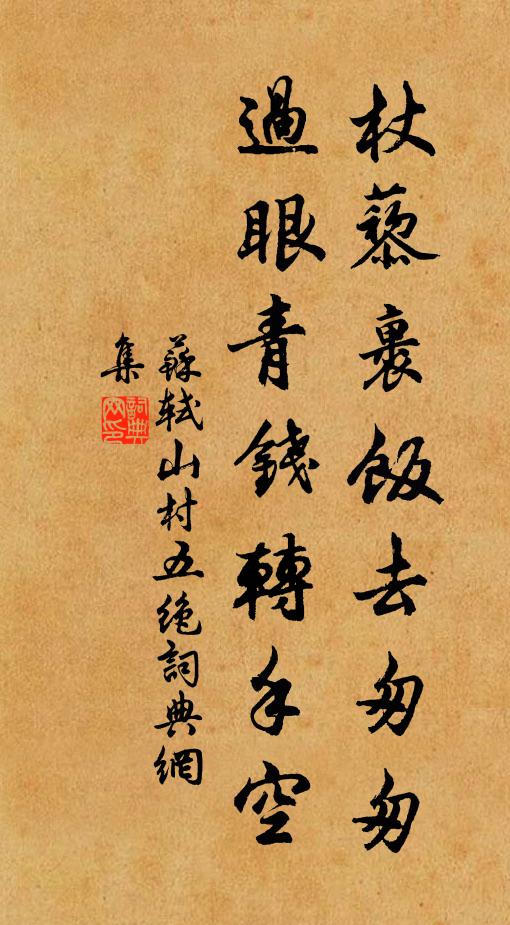 杖藜裹飯去匆匆
過眼青錢轉手空
蘇軾山村五絶詞典網
集
詞典
网印